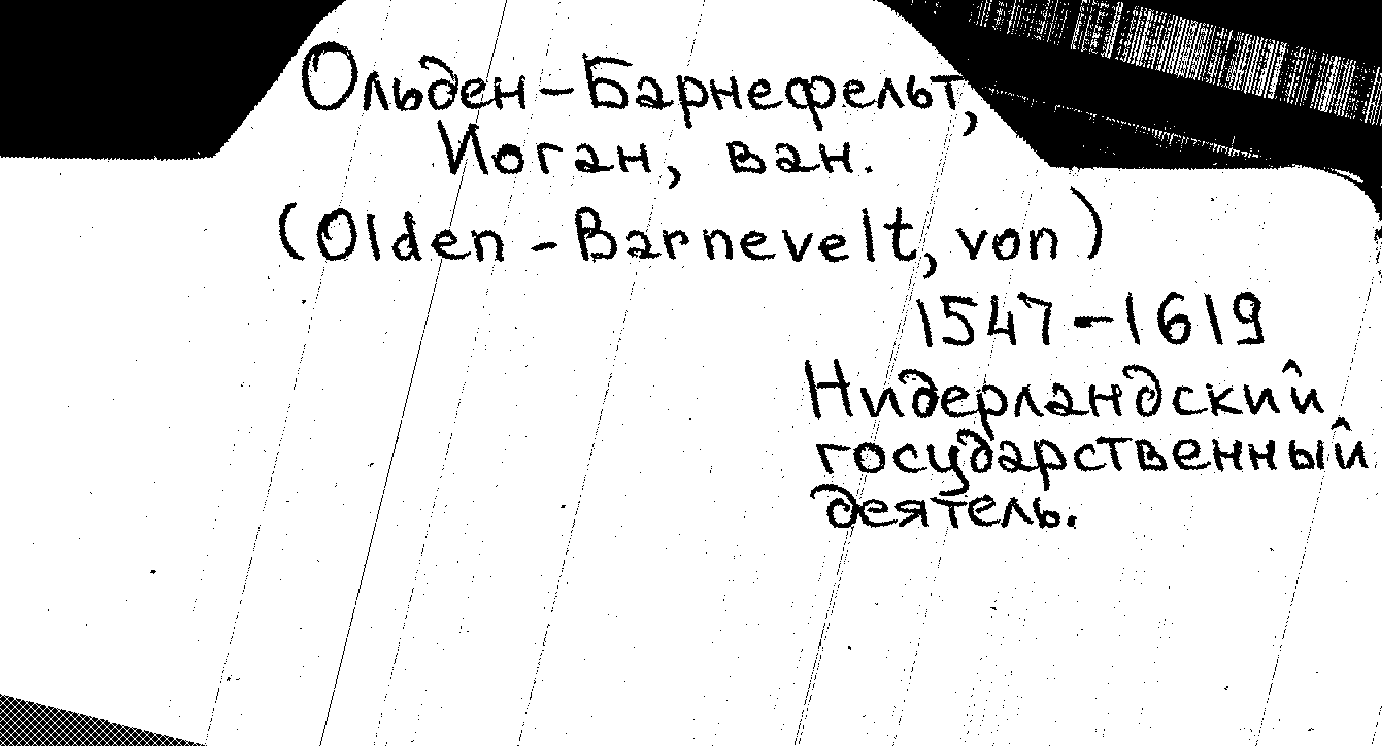 Ольден-Барнефельт,
Иоган, ван.
(Olden-Barnevelt, von)
1547-1619
Нидерландский
государственный
деятель.